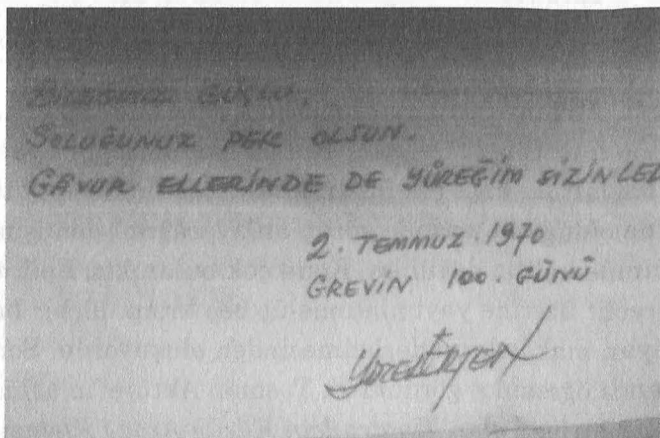 BİLEĞİNİZ GÜÇLÜ,
SOLUĞUNUZ PEK OLSUN.
GAVUR ELLERİNDE DE YÜREĞİM SİZİNLE
2. TEMMUZ. 1970
GREVİN 100. GÜNÜ